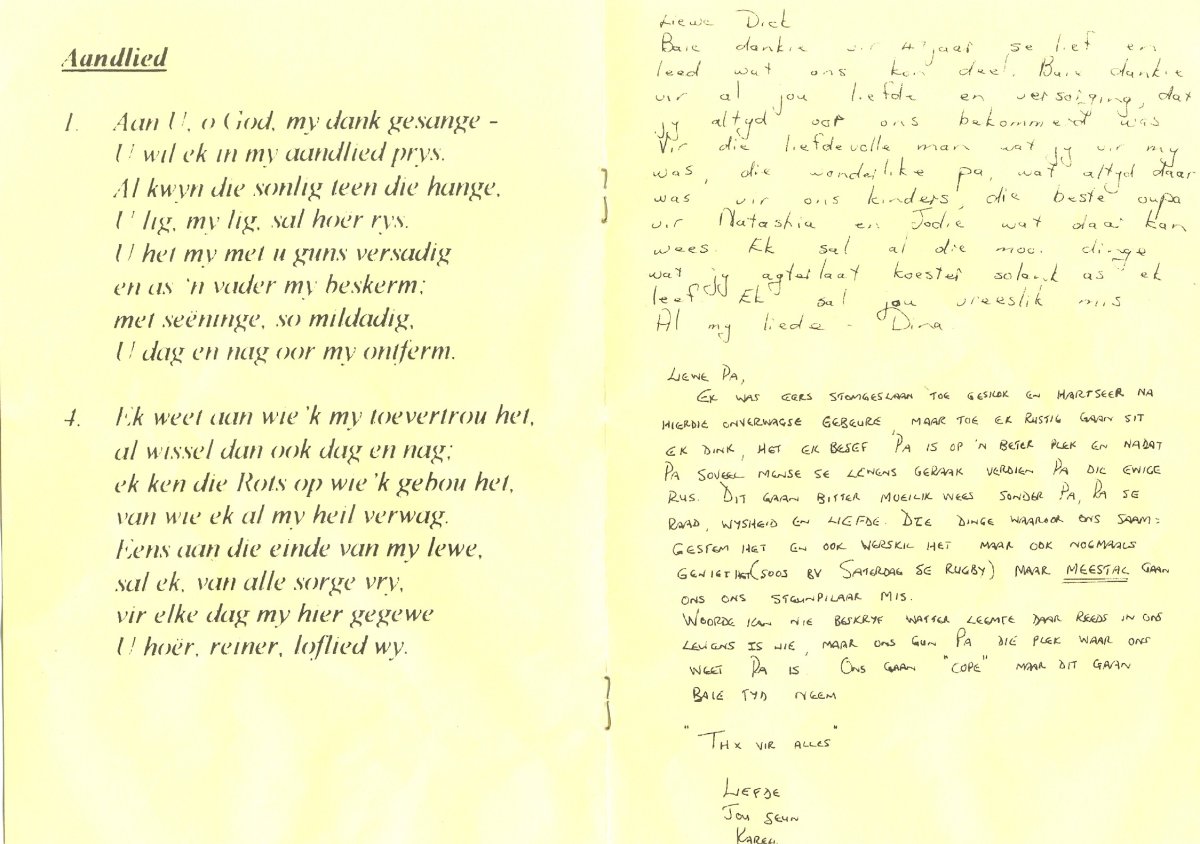 Aandlied
1. Aan U, o God, my dank gesange -
U wil ek in my aandlied prys.
Al kwyn die sonlig teen die hange,
U lig, my lig, sal hoer rys.
U het my met u guns versadig
en as 'n vader my beskerm;
met seëninge, so mildadig,
U dag en nag oor my ontferm.
4. Ek weet aan wie 'k my toevertrou het,
al wissel dan ook dag en nag;
ek ken die Rots op wie 'k gebou het,
van wie ek al my heil verwag.
Eens aan die einde van my lewe,
sal ek, van alle sorge vry,
vir elke dag my hier gegewe
U hoër, reiner, loflied wy.
Liewe Dick
Baie dankie vir jaar se lief en
leed wat ons kon deel. Baie dankie
vir al jou liefde en versorging, dat
jy altyd oor ons bekommerd was
Vir die liefdevolle man wat jy vir my
was, die wonderlike pa, wat altyd daar
was vir ons kinders, die beste oupa
vir Natashia en Jodie wat daar kan
wees. Ek sal al die mooi dinge
wat jy agterlaat koester solank as ek
leef Ek sal jou vreeslik mis
Al my liede - Dina
LIEWE PA,
EK WAS EERS STOMGESLAAN TOE GESKOK EN HARTSEER NA
HIERDIE ONVERWAGSE GEBEURE, MAAR TOE EK RUSTIG GAAN SIT
EK DINK, HET EK BESEF PA IS OP 'N BETER PLEK EN NADAT
PA SOVEEL MENSE SE LEWENS GERAAK VERDIEN PA DIE EWIGE
RUS. DIT GAAN BITTER MOEILIK WEES SONDER PA, PA SE
RAAD, WYSHEID EN LIEFDE. DIE DINGE WAAROOR ONS SAAM=
GESTEM HET EN OOK VERSKIL HET MAAR OOK NOGMAALS
GENIET HET (SOOS BV SATERDAG SE RUGBY) MAAR MEESTAL GAAN
ONS ONS STEUNPILAAR MIS.
WOORDE KAN NIE BESKRYF WATTER LEEMTE DAAR REEDS IN ONS
LEWENS IS NIE, MAAR ONS GUN PA DIE PLEK WAAR ONS
WEET PA IS. ONS GAAN "COPE" MAAR DIT GAAN
BAIE TYD NEEM
"THX VIR ALLES"
LIEFDE
JOU SEUN